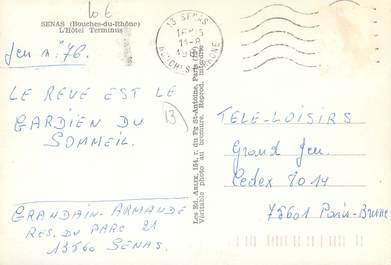 10 €
SENAS (Bouches-du-Rhône)
L'Hôtel Terminus
13 SENAS
BOUCHES RHONE
Jeu n° 76.
LE REVE EST LE
GARDIEN DU
SOMMEIL.
13
GRANDAIN. ARMANDE
RES. DU PARC 21
13560 SENAS.
Les Ed. Amer, 154, r. du Fg St-Antoine, Paris (12e)
Véritable photo au bromure. Reprod. interdite
TELE-LOISIRS
Grand Jeu
Cedex 7014
75601 Paris-Brune